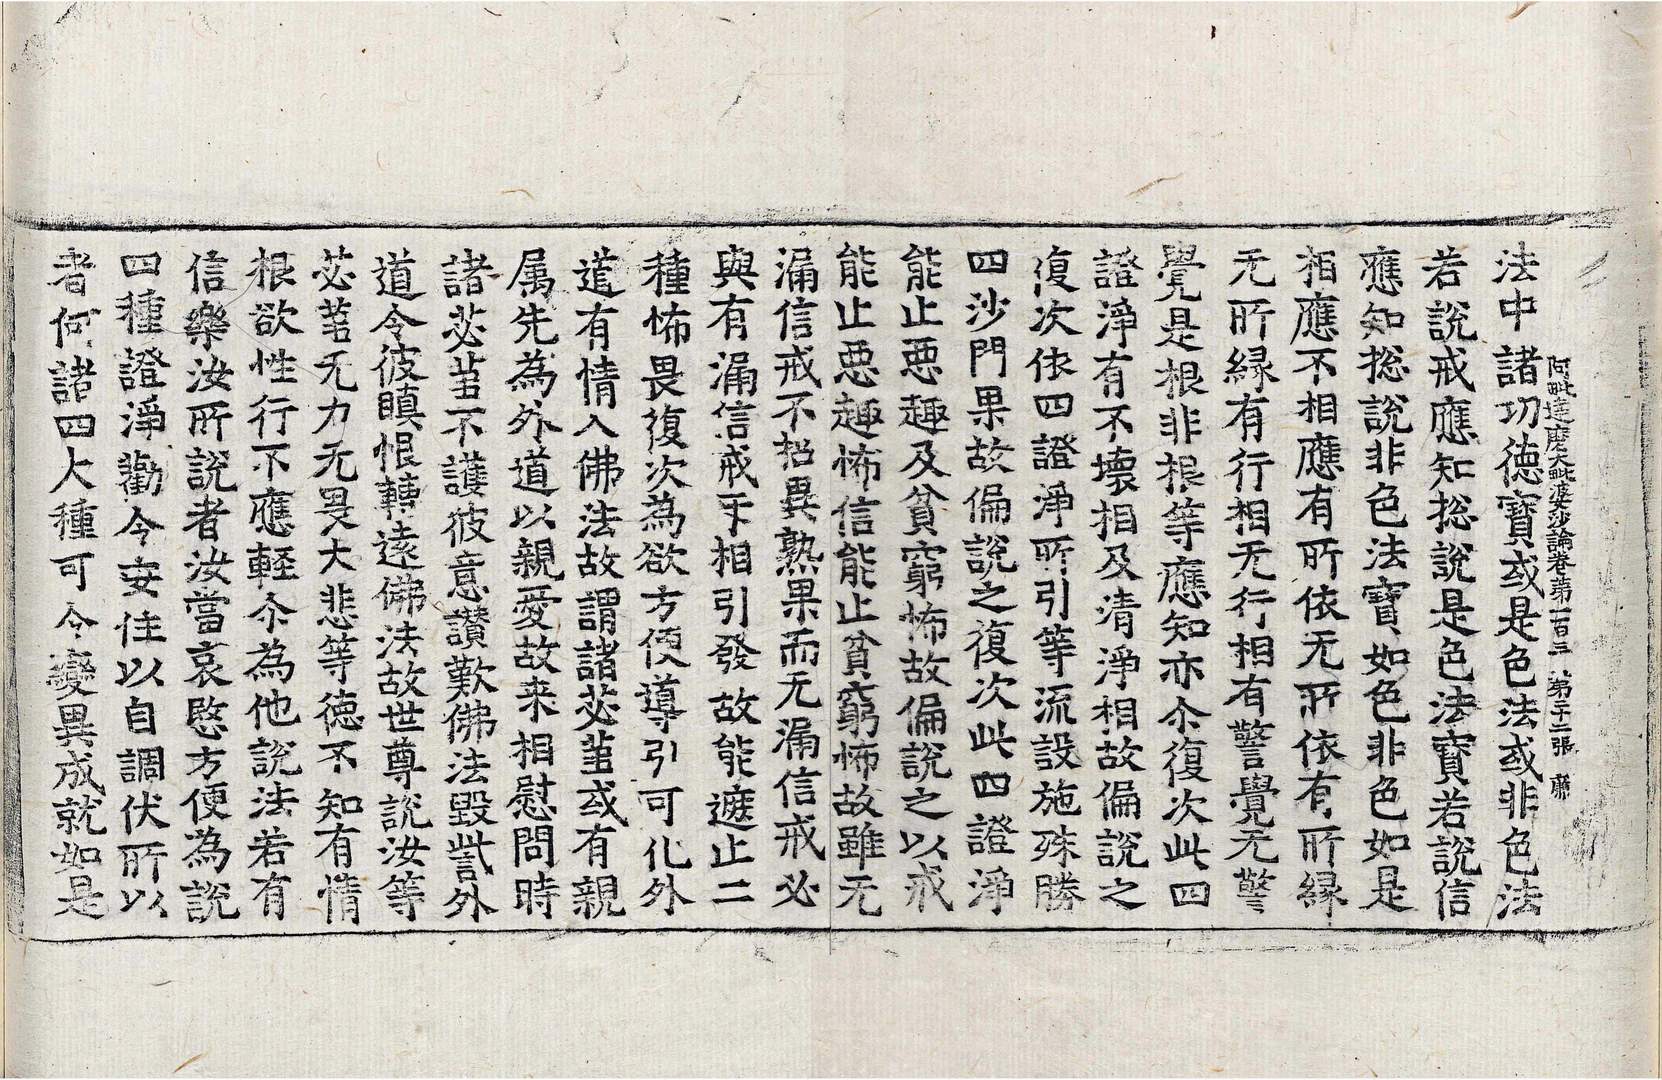 阿毗達磨大毗婆沙論卷第一百三 第二十二張
法中諸功德寶或是色法或非色法
若說戒應知捴說是色法寶若說信
應知捴說非色法寶如色非色如是
相應不相應有所依无所依有所緣
无所緣有行相无行相有警覺无警
覺是根非根等應知亦尒復次此四
證淨有不壞相及清淨相故偏說之
復次依四證淨所引等流設施殊勝
四沙門果故偏說之復次此四證淨
能止惡趣及貧窮怖故偏說之以戒
能止惡趣怖信能止貧窮怖故雖无
漏信戒不招異熟果而无漏信戒必
與有漏信戒㸦相引發故能遮止二
種怖畏復次為欲方便導引可化外
道有情入佛法故謂諸苾蒭或有親
属先為外道以親愛故来相慰問時
諸苾蒭不護彼意讃歎佛法毀訾外
道令彼瞋恨轉遠佛法故世尊說汝等
苾蒭无力无畏大悲等德不知有情
根欲性行不應輕尒為他說法若有
信樂汝所說者汝當哀愍方便為說
四種證淨勸令安住以自調伏所以
者何諸四大種可令變異成就如是